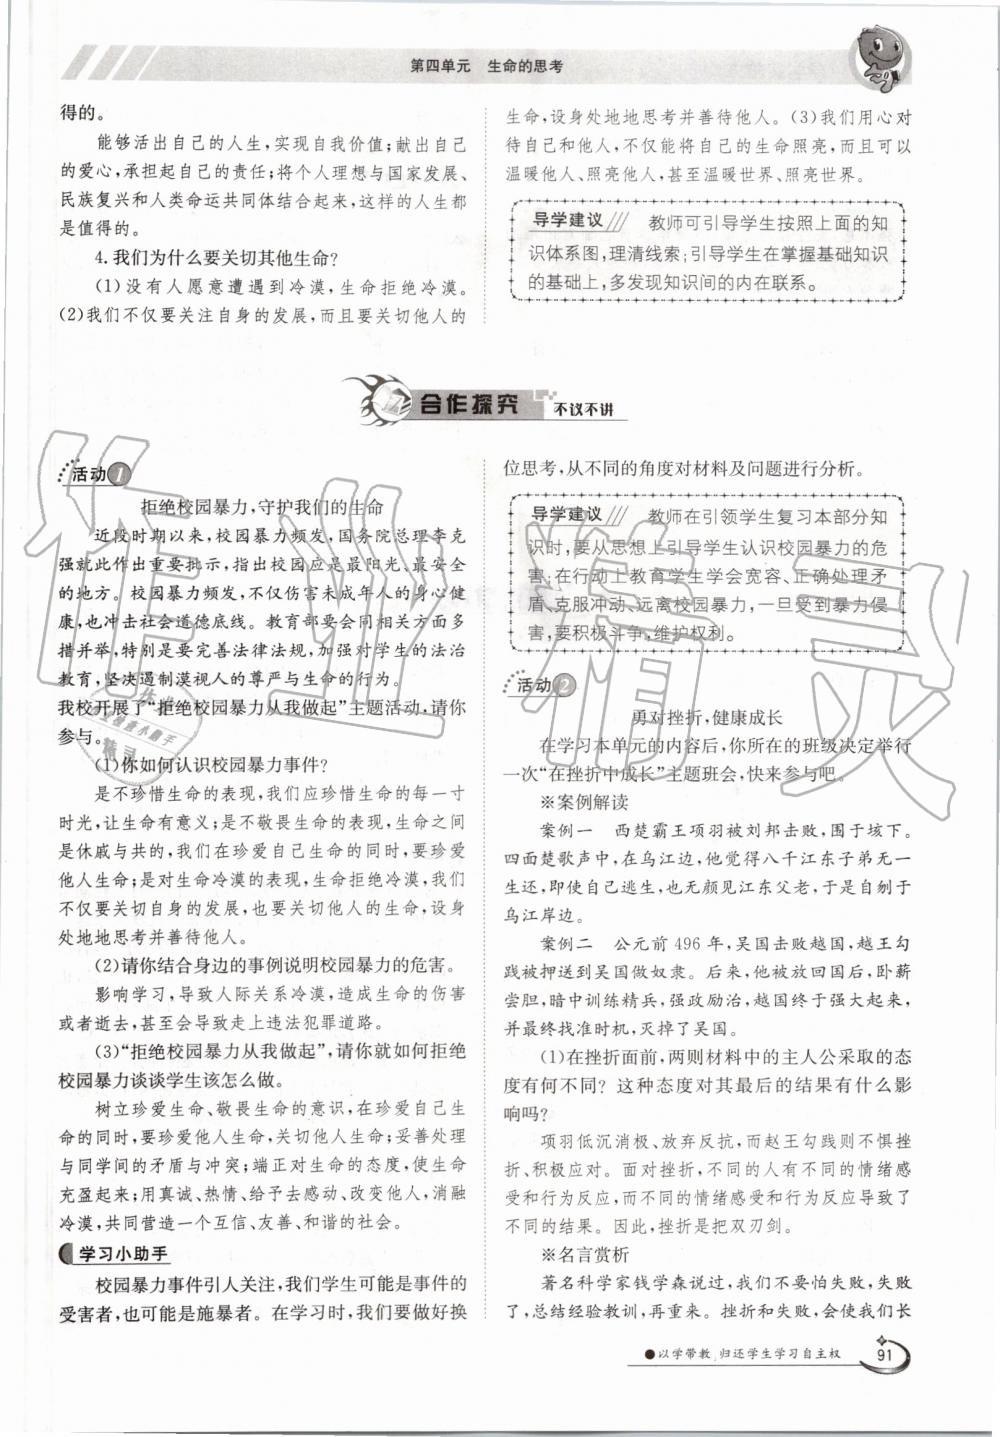 第四单元　生命的思考
得的。
能够活出自己的人生,实现自我价值;献出自己
的爱心,承担起自己的责任;将个人理想与国家发展、
民族复兴和人类命运共同体结合起来,这样的人生都
是值得的。
4.我们为什么要关切其他生命?
(1)没有人愿意遭遇到冷漠,生命拒绝冷漠。
(2)我们不仅要关注自身的发展,而且要关切他人的
生命,设身处地地思考并善待他人。(3)我们用心对
待自己和他人,不仅能将自己的生命照亮,而且可以
温暖他人、照亮他人,甚至温暖世界、照亮世界。
导学建议　教师可引导学生按照上面的知
识体系图,理清线索;引导学生在掌握基础知识
的基础上,多发现知识间的内在联系。
合作探究　不议不讲
活动1
拒绝校园暴力,守护我们的生命
近段时期以来,校园暴力频发,国务院总理李克
强就此作出重要批示,指出校园应是最阳光、最安全
的地方。校园暴力频发,不仅伤害未成年人的身心健
康,也冲击社会道德底线。教育部要会同相关方面多
措并举,特别是要完善法律法规,加强对学生的法治
教育,坚决遏制漠视人的尊严与生命的行为。
我校开展了“拒绝校园暴力从我做起”主题活动,请你
参与。
(1)你如何认识校园暴力事件?
是不珍惜生命的表现,我们应珍惜生命的每一寸
时光,让生命有意义;是不敬畏生命的表现,生命之间
是休戚与共的,我们在珍爱自己生命的同时,要珍爱
他人生命;是对生命冷漠的表现,生命拒绝冷漠,我们
不仅要关切自身的发展,也要关切他人的生命,设身
处地地思考并善待他人。
(2)请你结合身边的事例说明校园暴力的危害。
影响学习,导致人际关系冷漠,造成生命的伤害
或者逝去,甚至会导致走上违法犯罪道路。
(3)“拒绝校园暴力从我做起”,请你就如何拒绝
校园暴力谈谈学生该怎么做。
树立珍爱生命、敬畏生命的意识,在珍爱自己生
命的同时,要珍爱他人生命,关切他人生命;妥善处理
与同学间的矛盾与冲突;端正对生命的态度,使生命
充盈起来;用真诚、热情、给予去感动、改变他人,消融
冷漠,共同营造一个互信、友善、和谐的社会。
学习小助手
校园暴力事件引人关注,我们学生可能是事件的
受害者,也可能是施暴者。在学习时,我们要做好换
位思考,从不同的角度对材料及问题进行分析。
导学建议　教师在引领学生复习本部分知
识时,要从思想上引导学生认识校园暴力的危
害;在行动上教育学生学会宽容、正确处理矛
盾、克服冲动、远离校园暴力,一旦受到暴力侵
害,要积极斗争,维护权利。
活动2
勇对挫折,健康成长
在学习本单元的内容后,你所在的班级决定举行
一次“在挫折中成长”主题班会,快来参与吧。
※案例解读
案例一　西楚霸王项羽被刘邦击败,围于垓下。
四面楚歌声中,在乌江边,他觉得八千江东子弟无一
生还,即使自己逃生,也无颜见江东父老,于是自刎于
乌江岸边。
案例二　公元前 496 年,吴国击败越国,越王勾
践被押送到吴国做奴隶。后来,他被放回国后,卧薪
尝胆,暗中训练精兵,强政励治,越国终于强大起来,
并最终找准时机,灭掉了吴国。
(1)在挫折面前,两则材料中的主人公采取的态
度有何不同?这种态度对其最后的结果有什么影
响吗?
项羽低沉消极、放弃反抗,而赵王勾践则不惧挫
折、积极应对。面对挫折,不同的人有不同的情绪感
受和行为反应,而不同的情绪感受和行为反应导致了
不同的结果。因此,挫折是把双刃剑。
※名言赏析
著名科学家钱学森说过,我们不要怕失败,失败
了,总结经验教训,再重来。挫折和失败,会使我们长
●以学带教,归还学生学习自主权
91
作业精灵